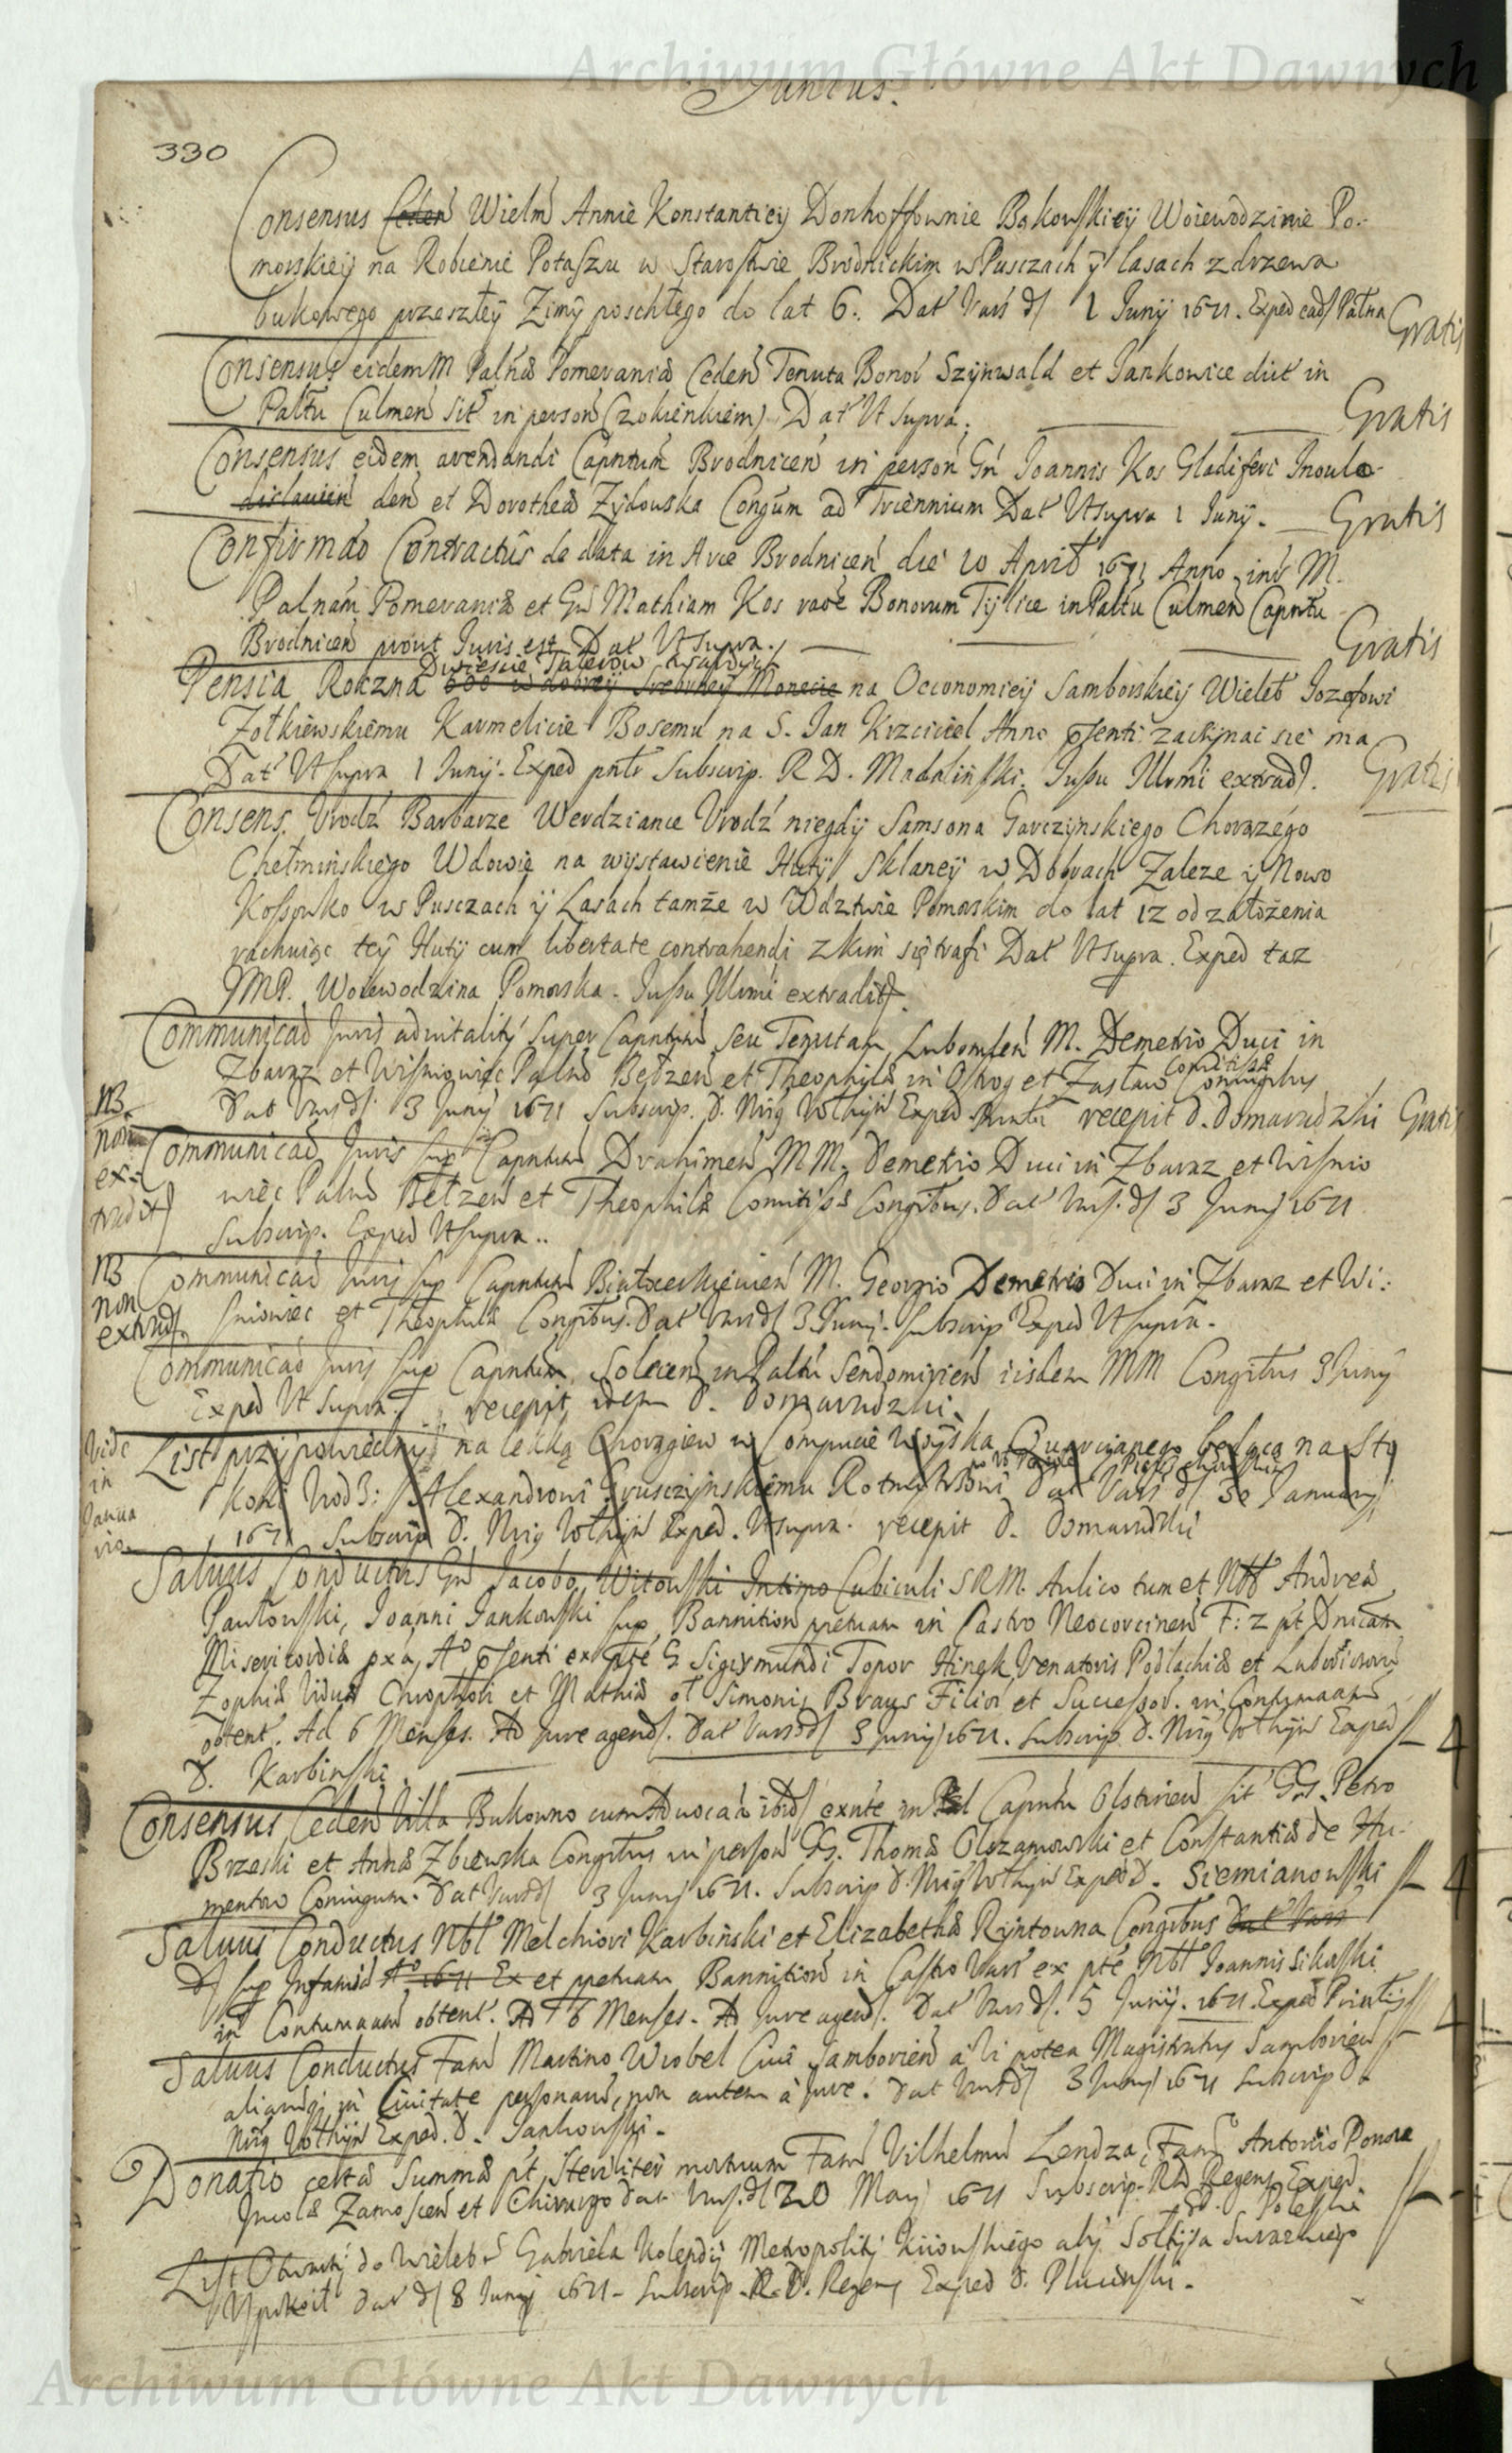 Archiwum Główne Akt Dawnych
Junius.
330
Consensus Ceden Wielm Annie Konstanticij Donhoffownie Bąkowskieij Woiewodzinie Po:
morskieij na Robienie Potaszu w Starostwie Brodnickim w Pusczach ÿ lasach z drzewa
bukowego przeszłeÿ Zimÿ poschłego do lat 6. Dat Vars d 1 Junij 1671. Exped ead Palna Gratis
Consensus eidem M Palna Pomerania Ceden Tenuta Bonor Szÿnwald et Jankowice dict in
Paltu Culmen sit in person Czokienkiem Dat Vt supra. Gratis
Consensus eidem arendandi Capntum Brodnicen in person Gn Joannis Kos Gladiferi Inoula-
dislauien den et Dorothea Zÿdowska Congum ad Triennium Dat Vtsupra 1 Junÿ. Gratis
Confirmao Contractus de data in Arce Brodnicen die 20 April 1671 Anno int M.
Palnam Pomerania et Gn Mathiam Kos raoe Bonorum Tÿlice in Paltu Culmen Capntu
Brodnicen prout Juris est Dat Vt supra. Gratis
Dwiescie Talerow twardych
Pensia Roczna 600 w dobreÿ Srebrneÿ Monecie na Oeconomieij Samborskieij Wieleb Jozefowi
Zołkiewskiemu Karmelicie Bosemu na S. Jan Krzciciel Anni psenti zaczÿnać sie ma
Dat Vt supra 1 Junÿ. Exped pntr Subscrip. R D. Madalinski. Jussu Illrmi extrad. Gratis
Consens. Vrodz Barbarze Werdziance Vrodz niegdÿ Samsona Garczynskiego Chorązego
Chełminskiego Wdowie na wystawienie Hutÿ Sklaneÿ w Dobrach Zaleze ÿ Nowo
w Pusczach ÿ Lasach tamże w Wdztwie Pomorskim do lat 12 od założenia
rachuiąc teÿ Hutÿ cum libertate contrahendi z kim się trafi Dat Vtsupra. Exped taz
JMP. Woiewodzina Pomorska. Jussu Illrmi extradit.
Communicao Juris aduitalitÿ super Capntum seu Tenutam Lubomlen M. Demetrio Duci in
Zbaraz et Wisniowiec Palno Bełzen et Theophila in Ostrog et Zasław Comitissa Coniugibus
Dat Vars d 3 Junÿ 1671 Subscrip. D. Nrig Wołhÿn Exped recepit D. Domaradzki Gratis
NB.
non
ex:
tradit
Communicao Juris sup Capntum Drahimen MM. Demetrio Duci in Zbaraz et Wisnio
wiec Palno Bełzen et Theophila Comitissa Congibus. Dat Vars. d 3 Junÿ 1671
Subscrip. Exped Vtsupra..
NB
non
extrad.
Communicao Juris sup Capntum Białocerkiewien M. Georgio Demetrio Duci in Zbaraz et Wi:
sniowiec et Theophila Congibus. Dat Vars d 3 Junÿ. Subscrip Exped Vtsupra.
Communicao Juris sup Capntum Solecen in Paltu Sendomirien iisdem MM Congibus 3 Junÿ
Exped Vt supra. recepit idem D. Domaradzki.
Vide
in
Janua
rio.
List przÿpowiednÿ na lekką Chorągiew w Compucie Woÿska Quarcianego będącą na Sto
koni Vrodz: Alexandrowi Grusczÿnskiemu Rotmistrzowi Dat Vars d 30 Januarÿ
1671 Subscrip D. Nrig Wołhÿn Exped. Vtsupra. recepit D. Domaradzki
Saluus Conductus Gn Jacobo Witowski Intimo Cubiculi SRM. Aulico tum et Nbl Andrea
Pawłowski, Joanni Jankowski sup Bannition pretuam in Castro Neocorcinen F: 2 pt Dnicam
Misericordia pxa, Ao psenti ex pte G Sigismundi Topor Hinek Venatoris Podlachia et
Zophia Vidua Chrophori et Mathia ol Simonis Braus Filior et Successor. in Contumaciam
obtent. Ad 6 Menses. Ad Jure agend. Dat Vars d 3 Junÿ 1671. Subscrip. D. Nrig Wołhÿn Exped 4
D. Karbinski.
Consensus Ceden Villa Bukowno cum Aduocaa ibid exnte in Capntu Olstinen sit GG. Petro
Brzeski et Anna Zbiewska Congibus in person GG. Thoma Olszamowski et Constantia de Hu-
mentow Coniugum. Dat Vars d 3 Junÿ 1671. Subscrip D. Nrig Wołhÿn Exped D. Siemianowski 4
Saluus Conductus Nbl Melchiori Karbinski et Elizabetha Rÿntowna Congibus Dat Vars
d sup Infamia Ao 1671 Ex et pretuam Bannition in Castro Vars ex pte Nbl Joannis Sikaski
in Contumaciam obtent. Ad 6 Menses. Ad Jure agend. Dat Vars d. 5 Junÿ. 1671. Exped 4
Saluus Conductus Fam Martino Wrobel Ciui Samborien a vi potea Magistratus Samborien
aliarumq in Ciuitate personarum, non autem a Jure. Dat Vars d 3 Junÿ 1671 Subscrip D.
Nrig Wołhÿn Exped. D. Jankowski.
Donatio certa Summa pt steriliter mortuum Fam Vilhelmum Lendza, Fam Antonio Ponore
Incola Zamoscen et Chirurgo Dat Vars. d 20 Maÿ 1671 Subscrip. RD Regens Exped.
D. Poleski
List Otwartÿ do Wieleb G Gabriela Kolendÿ Metropolitÿ Kiiowskiego abÿ Sołtÿsa Surazkiego
Vpokoił Dat d 8 Junÿ 1671. Subscrip. R. D. Regens Exped D. Plucinski.
Archiwum Główne Akt Dawnych